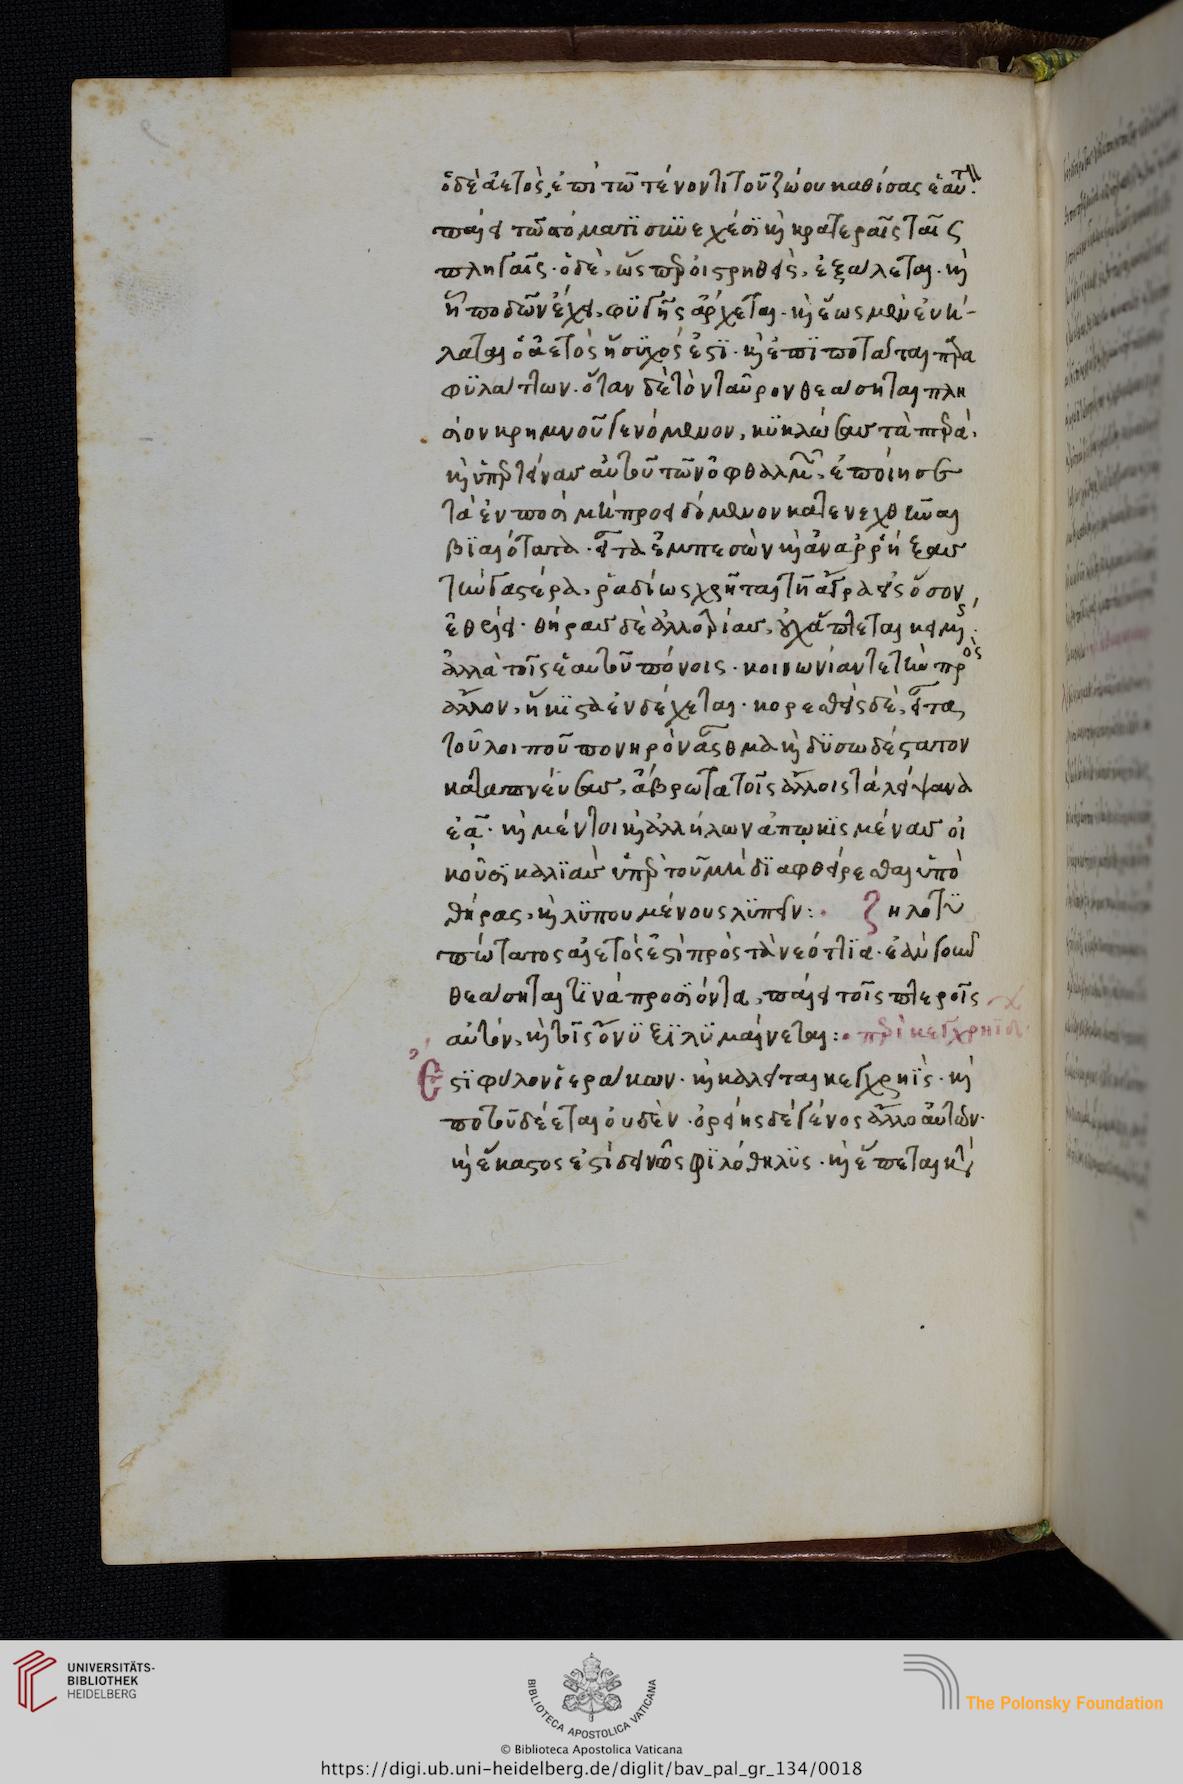 ὁ δὲ ἀετὸς, ἐπὶ τῶ τένοντι τοῦ ζώου καθίσας ἑαυτ.
παίει τῶ στόματι συνεχέσι καὶ κρατεραῖς ταῖς
πληγαῖς. ὁ δὲ, ὡς ὑπὸ οἴστρου ἐξάλλεται. καὶ
ἧ ποδῶν ἔχει, φυγῆς ἄρχεται. καὶ ἕως μὲν
ὁ ἀετὸς ἥσυχός ἐστι. καὶ ἐπιποτᾶται
φυλάττων. ὅταν δὲ τὸν ταῦρον θεάσηται πλη
σίον κρημνοῦ γενόμενον, κυκλώσας τὰ πτερὰ,
καὶ ὑπερτείνας αὐτοῦ τῶν ὀφθαλμῶν, ἐποίησε
τὰ ἐν ποσὶ μὴ προειδόμενον κατενεχθῆναι
βιαιότατα. εἶτα ἐμπεσὼν καὶ ἀναρρήξας
τὴν γαστέρα, ῥαδίως χρῆται τῆ ἄγρα εἰς ὅσον
ἐθέλει. θήρας δὲ ἀλλοτρίας, οὐχ ἅπτεται κειμένης.
ἀλλὰ τοῖς ἑαυτοῦ πόνοις. κοινωνίαν τε τὴν πρὸς
ἄλλον, ἥκιστα ἐνδέχεται. κορεσθεὶς δὲ, εἶτα
τοῦ λοιποῦ πονηρὸν ἆσθμα καὶ δυσωδέστατον
καταπνεύσας, ἄβρωτα τοῖς ἄλλοις τὰ λείψανα
ἐᾷ. καὶ μέντοι καὶ ἀλλήλων ἀπῳκισμένας οἰ
κοῦσι καλιὰς ὑπὲρ τοῦ μὴ διαφθείρεσθαι ὑπὸ
θήρας, καὶ λυπουμένους λυπεῖν: ζηλοτυ
πώτατος αἰετός ἐστὶ πρὸς τὰ νεόττια. ἐὰν γοῦν
θεάσηται τινὰ προσιόντα, παίει τοῖς πτεροῖς
αὐτόν, καὶ τοῖς ὄνυξι λυμαίνεται: περὶ κεγχρηΐδ
Ἐστὶ φῦλον ἱεράκων. καὶ καλεῖται κεγχρηῒς. καὶ
ποτοῦ δέεται οὐδὲν. ὀρείης δὲ γένος ἄλλο αὐτῶν.
καὶ ἕκαστος ἐστὶ δεινῶς φιλόθηλυς. καὶ ἕπεται
UNIVERSITÄTS-
BIBLIOTHEK
HEIDELBERG
BIBLIOTECA APOSTOLICA VATICANA
The Polonsky Foundation
© Biblioteca Apostolica Vaticana
https://digi.ub.uni-heidelberg.de/diglit/bav_pal_gr_134/0018